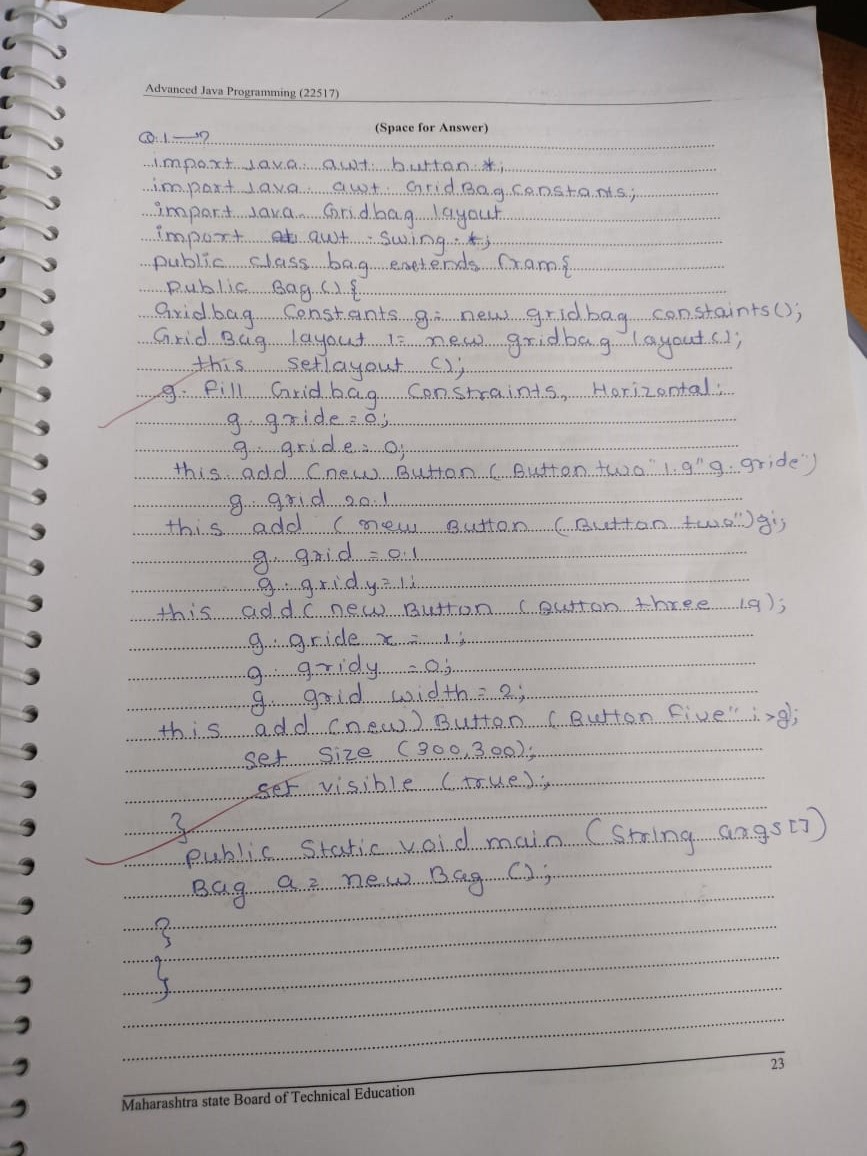 Advanced Java Programming (22517)
(Space for Answer)
Q.1 →
import Java. awt. button. *;
import Java. awt. GridBag.constants;
import Java. Gridbag layout
import awt. Swing. *;
public class bag extends fram{
public Bag () {
Gridbag Constants g= new gridbag constaints();
Grid Bag layout l= new gridbag layout();
this setlayout ();
g. fill Gridbag Constraints, Horizontal;
g. gride = 0;
g. gride = 0;
this. add (new Button ( Button two" 1.g" g. gride")
g. grid 20.1
this add ( new Button ( Button two")g;
g. grid = 0.1
g. gridy = 1;
this add ( new Button ( Button three 1g);
g. gride x = 1;
g. gridy = 0;
g. grid width = 2;
this add (new) Button ( Button five" ; >g);
set Size (300,300);
set visible (true);
}
public Static void main (String args[])
Bag a = new Bag ();
}
}
23
Maharashtra state Board of Technical Education